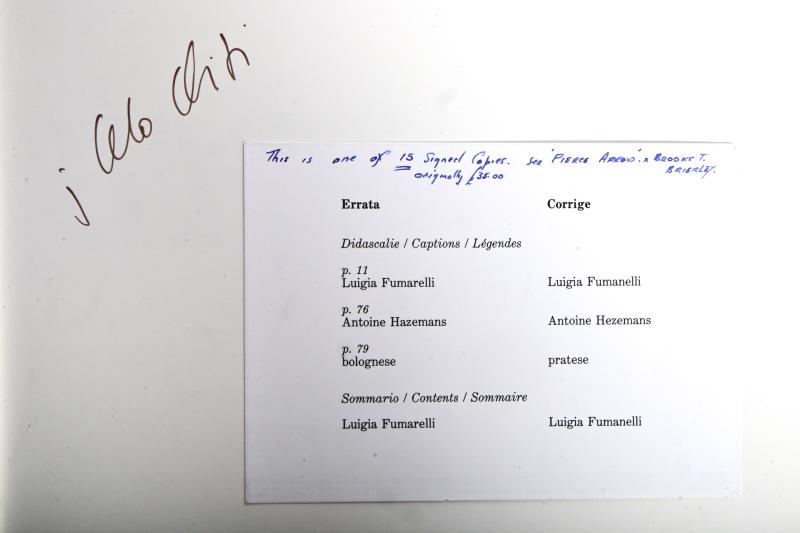 Carlo Chiti
This is one of 15 Signed Copies. See 'PIERCE ARROW'. x BROOKS T.
BRIERLEY.
originally £35.00
Errata Corrige
Didascalie / Captions / Légendes
p. 11
Luigia Fumarelli Luigia Fumanelli
p. 76
Antoine Hazemans Antoine Hezemans
p. 79
bolognese pratese
Sommario / Contents / Sommaire
Luigia Fumarelli Luigia Fumanelli